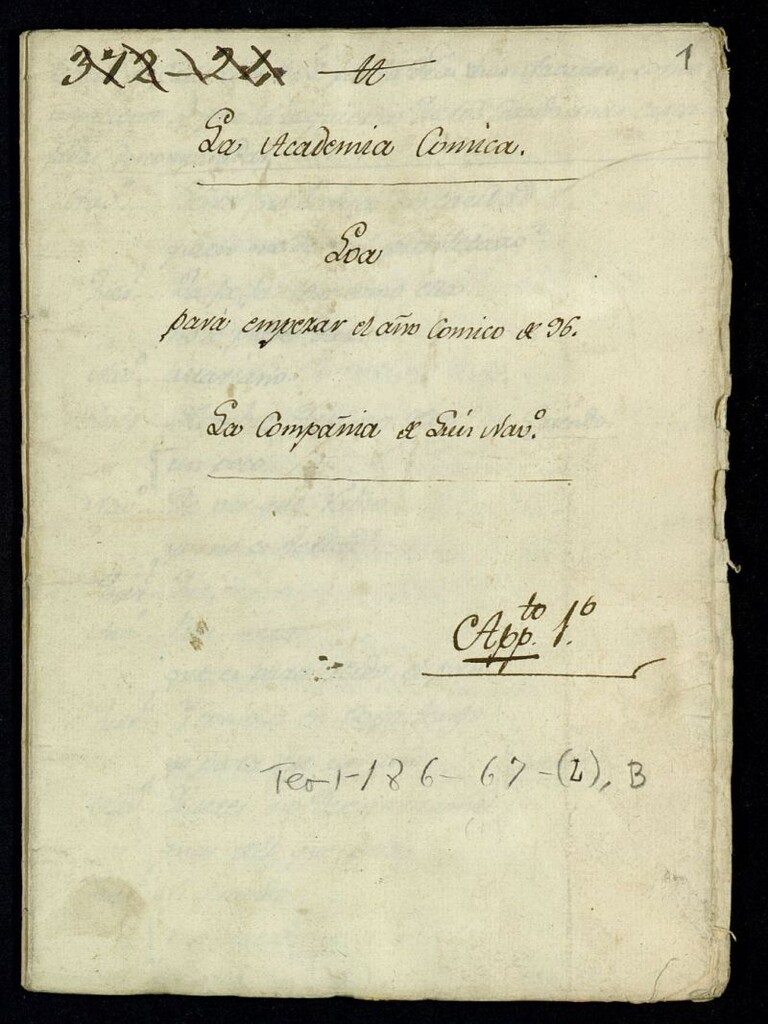 372-24 tt
1
La Academia Comica.
Loa
para empezar el año Comico de 96.
La Compañia de Luis Nav.º
App.to 1.º
Teo-1-186-67-(2), B